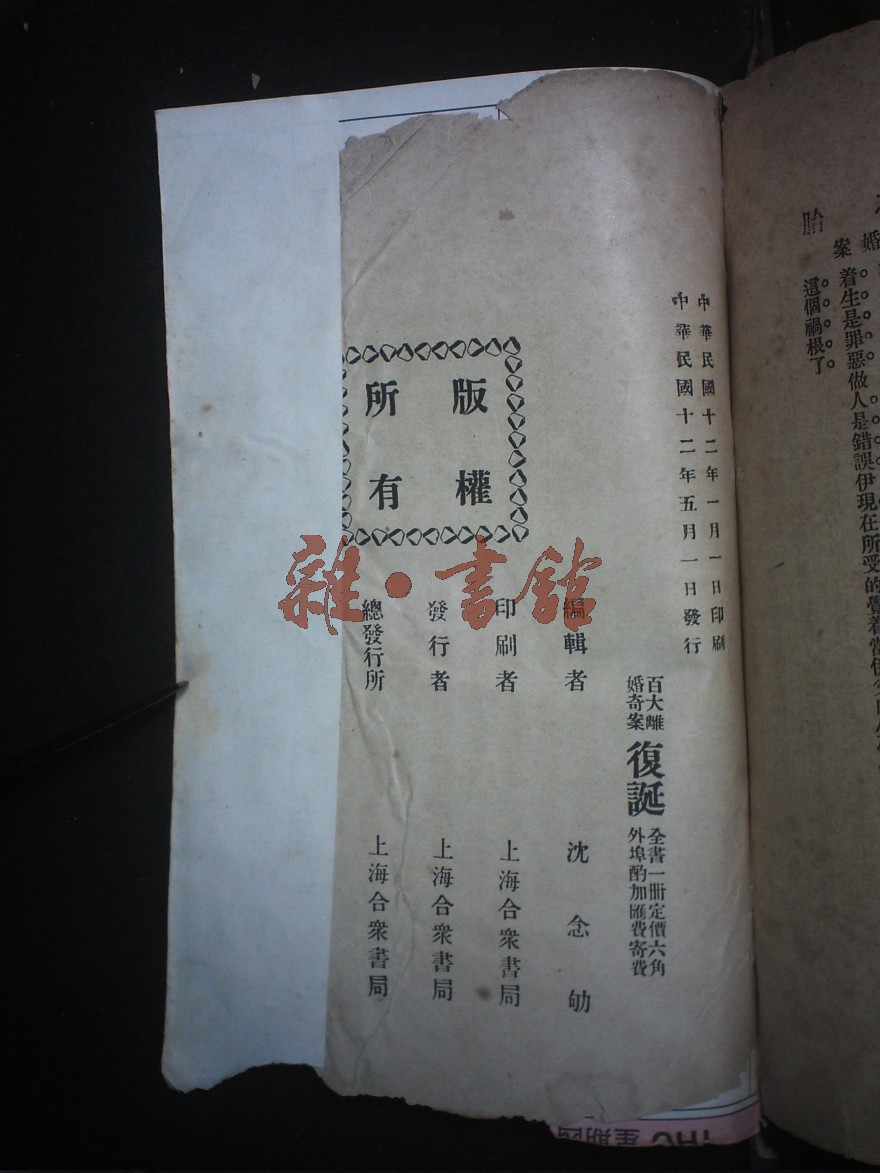 胎
婚
案
着生是罪惡做人是錯誤伊現在所受的
這個禍根了。
中華民國十二年一月一日印刷
中華民國十二年五月一日發行
百大離
婚奇案
復誕
全書一冊定價六角
外埠酌加匯費寄費
編輯者 沈念劬
印刷者 上海合衆書局
發行者 上海合衆書局
總發行所 上海合衆書局
版權
所有
雜·書館
THU 星期四